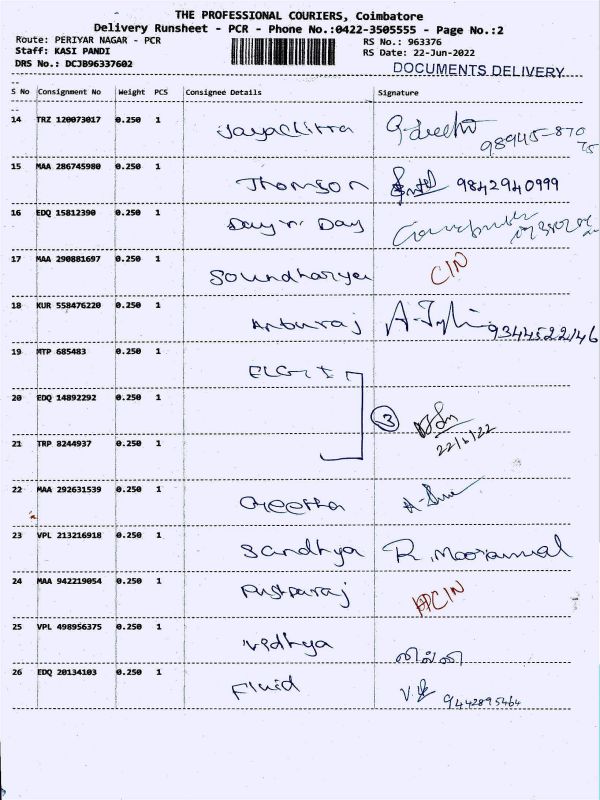 THE PROFESSIONAL COURIERS, Coimbatore
Delivery Runsheet - PCR - Phone No.:0422-3505555 - Page No.:2
Route: PERIYAR NAGAR - PCR
RS No.: 963376
Staff: KASI PANDI
RS Date: 22-Jun-2022
DRS No.: DCJB96337602
DOCUMENTS DELIVERY
S No Consignment No Weight PCS Consignee Details Signature
14 TRZ 120073017 0.250 1 Jayachitra
98945-870
75
15 MAA 286745980 0.250 1 Thomson 9842940999
16 EDQ 15812390 0.250 1 Day n Day
17 MAA 290881697 0.250 1 Soundharya CIN
18 KUR 558476220 0.250 1 Anburaj 9344522146
19 MTP 685483 0.250 1 ELGI
20 EDQ 14892292 0.250 1 3
22/6/22
21 TRP 8244937 0.250 1
22 MAA 292631539 0.250 1 Geetha
23 VPL 213216918 0.250 1 Sandhya R.
24 MAA 942219054 0.250 1 Pushparaj CIN
25 VPL 498956375 0.250 1 Vidhya
26 EDQ 20134103 0.250 1 Fluid 9442895464